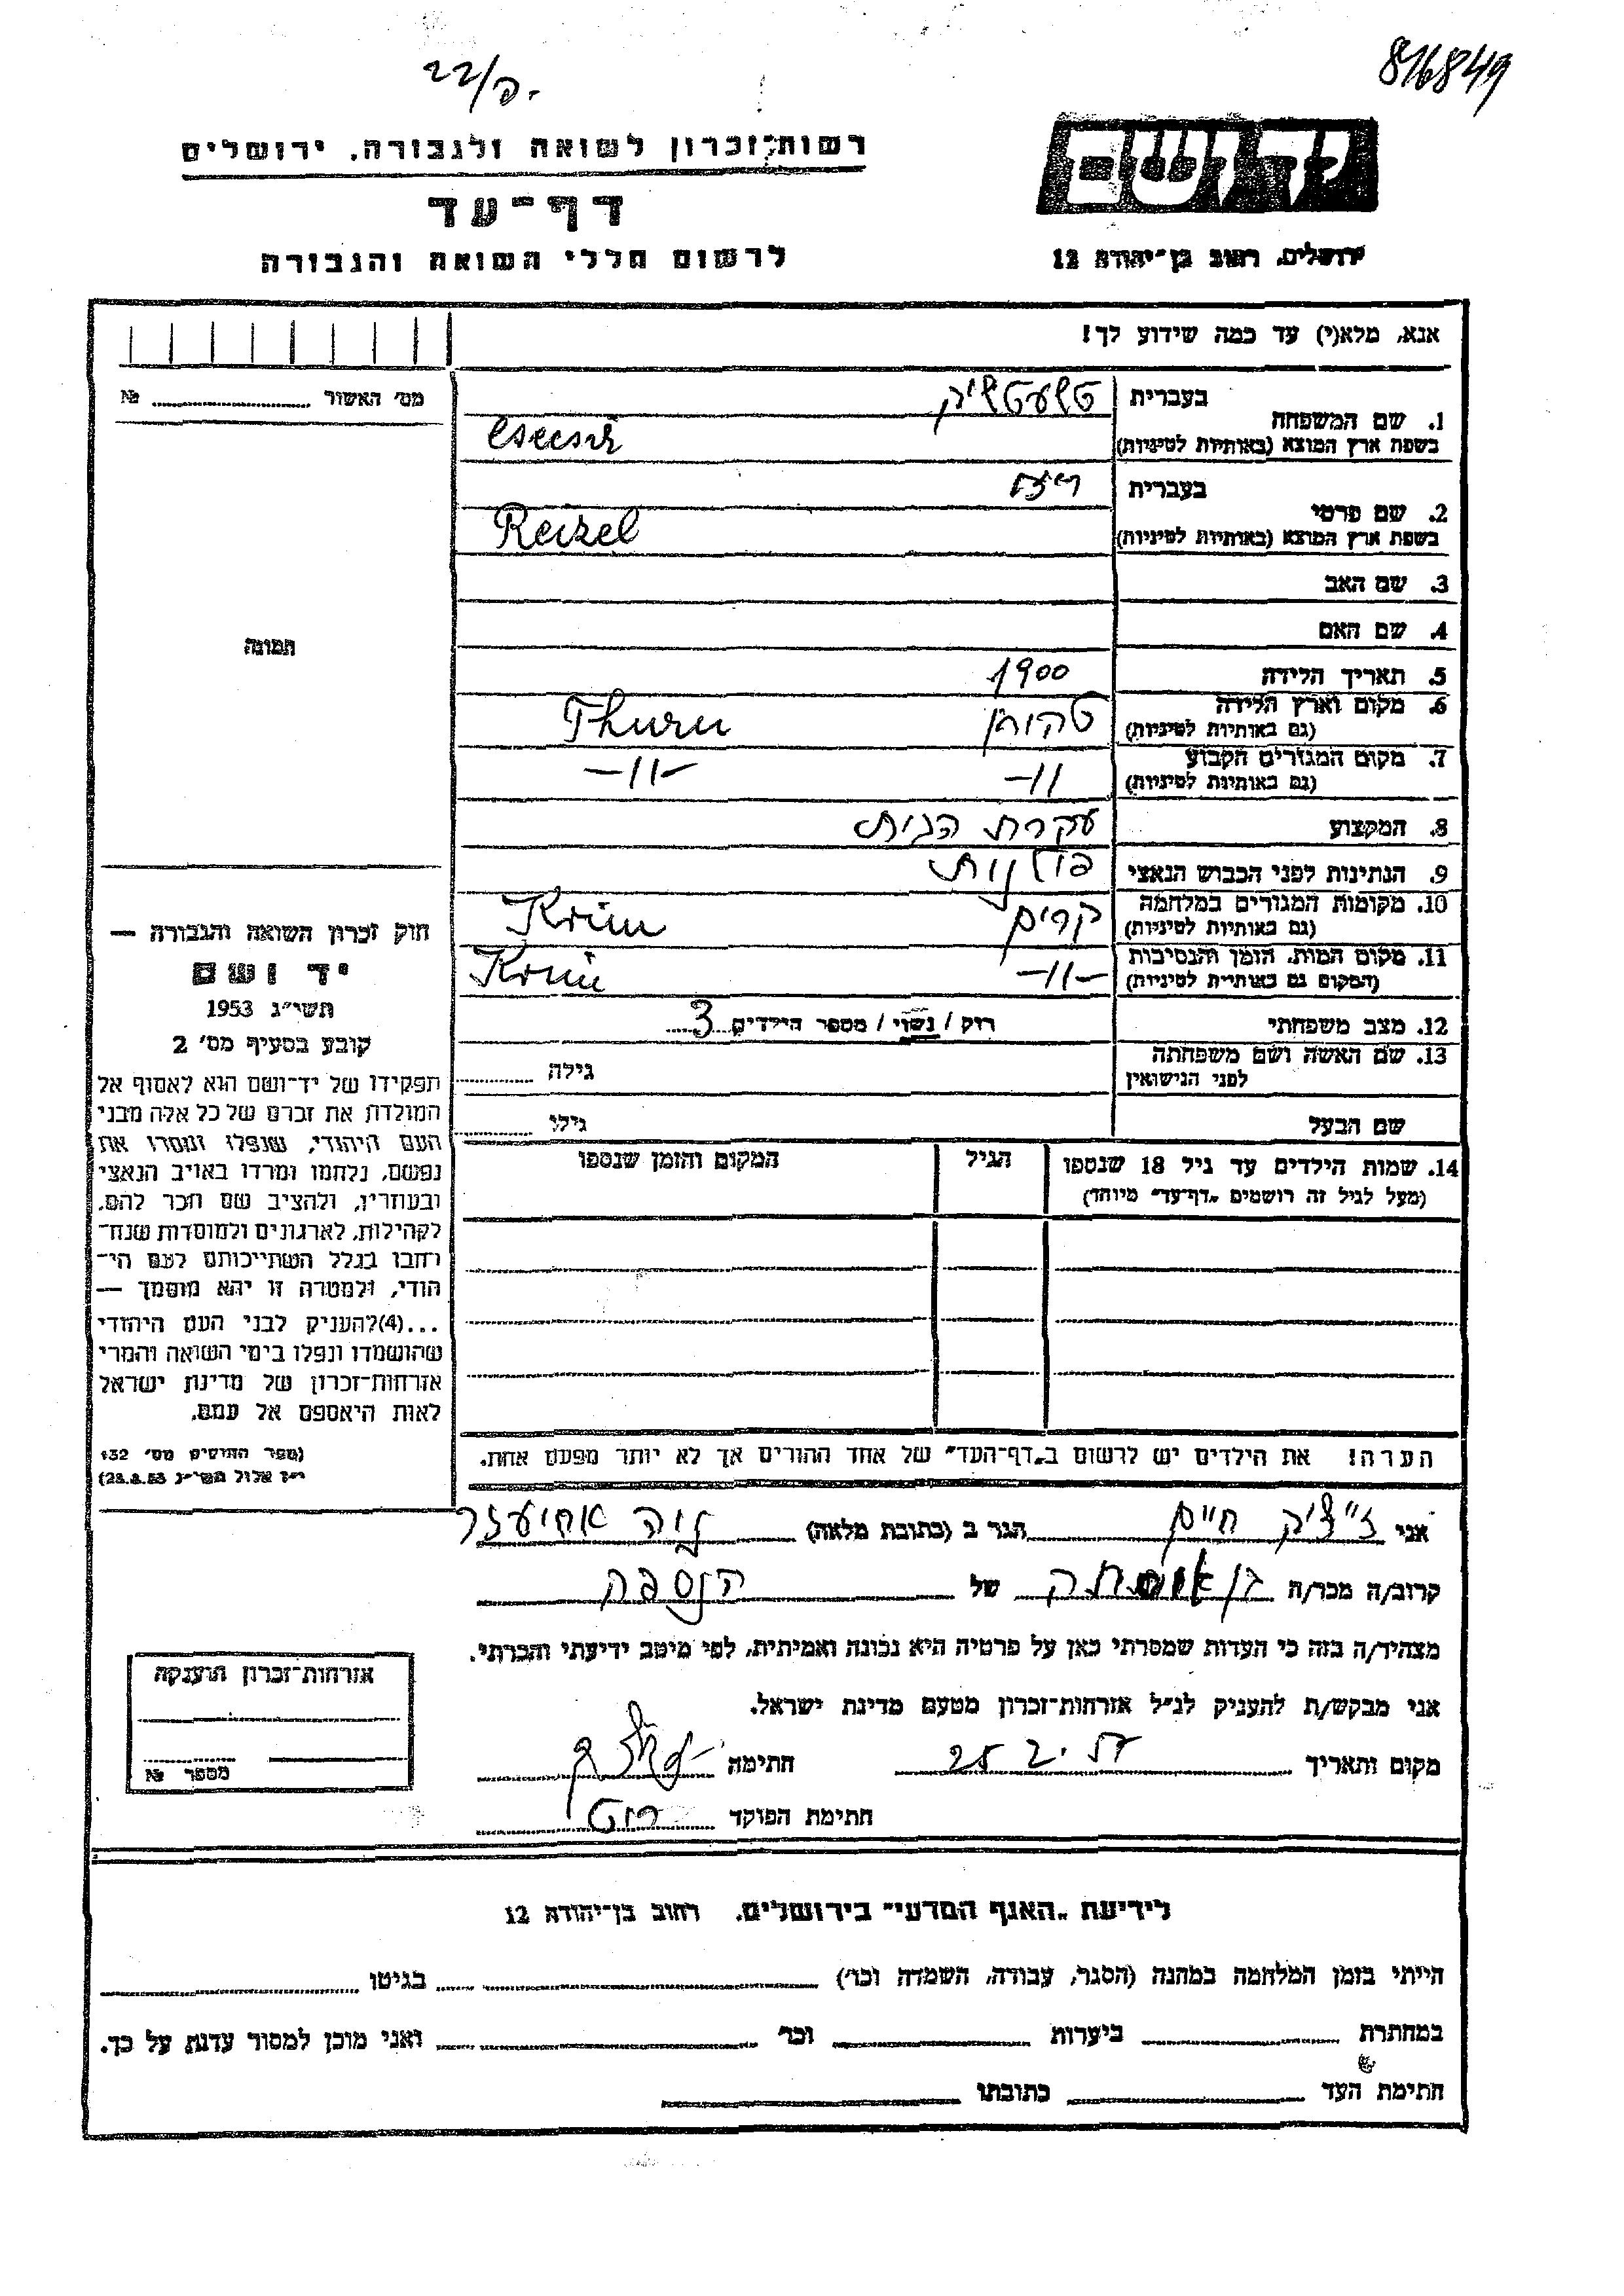 816849
22/פ.
יד ושם
ירושלים, רחוב בן־יהודה 12
רשות־זכרון לשואה ולגבורה, ירושלים
דף־עד
לרשום חללי השואה והגבורה
אנא, מלא(י) עד כמה שידוע לך!
מס׳ האשור № 
תמונה
1. שם המשפחה בעברית טשעטשיק
בשפת ארץ המוצא (באותיות לטיניות)
2. שם פרטי בעברית
בשפת ארץ המוצא (באותיות לטיניות) Reizel
3. שם האב
4. שם האם
5. תאריך הלידה 1900
6. מקום וארץ הלידה
(גם באותיות לטיניות) טהורן Thurn
7. מקום המגורים הקבוע
(גם באותיות לטיניות) -11- -11-
8. המקצוע עקרת הבית
9. הנתינות לפני הכבוש הנאצי פולנית
10. מקומות המגורים במלחמה
(גם באותיות לטיניות) קרים Krim
11. מקום המות, הזמן והנסיבות
(המקום גם באותיות לטיניות) -11- Krim
12. מצב משפחתי רוק / נשוי / מספר הילדים 3
13. שם האשה ושם משפחתה
לפני הנישואין גילה
שם הבעל גילו
14. שמות הילדים עד גיל 18 שנספו הגיל המקום והזמן שנספו
(מעל לגיל זה רושמים „דף־עד" מיוחד)
הערה! את הילדים יש לרשום ב„דף־העד" של אחד ההורים אך לא יותר מפעם אחת.
חוק זכרון השואה והגבורה —
יד ושם
תשי״ג 1953
קובע בסעיף מס׳ 2
תפקידו של יד־ושם הוא לאסוף אל
המולדת את זכרם של כל אלה מבני
העם היהודי, שנפלו ומסרו את
נפשם, נלחמו ומרדו באויב הנאצי
ובעוזריו, ולהציב שם וזכר להם,
לקהילות, לארגונים ולמוסדות שנח־
רחבו בגלל השתייכותם לעם הי־
הודי, ולמטרה זו יהא מוסמך —
...(4)להעניק לבני העם היהודי
שהושמדו ונפלו בימי השואה והמרי
אזרחות־זכרון של מדינת ישראל
לאות היאספם אל עמם.
(ספר החוקים מס׳ 132
י״ז אלול תשי״ג 28.8.53)
אני חיים הגר ב (כתובת מלאה) אחיעזר
קרוב/ה מכר/ה של הנספה
מצהיר/ה בזה כי העדות שמסרתי כאן על פרטיה היא נכונה ואמיתית, לפי מיטב ידיעתי והכרתי.
אני מבקש/ת להעניק לנ״ל אזרחות־זכרון מטעם מדינת ישראל.
מקום ותאריך 25.2.57 חתימה
חתימת הפוקד
אזרחות־זכרון הוענקה
מספר №
לידיעת „האגף המדעי" בירושלים, רחוב בן־יהודה 12
הייתי בזמן המלחמה במחנה (הסגר, עבודה, השמדה וכו׳) בגיטו
במחתרת ביערות וכו׳ ואני מוכן למסור עדות על כך.
חתימת העד כתובתו